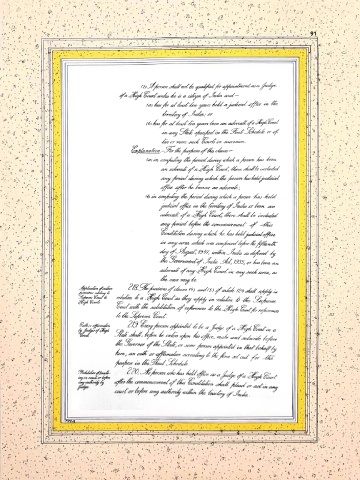 91
(2) A person shall not be qualified for appointment as a Judge
of a High Court unless he is a citizen of India and—
(a) has for at least ten years held a judicial office in the
territory of India; or
(b) has for at least ten years been an advocate of a High Court
in any State specified in the First Schedule or of
two or more such Courts in succession.
Explanation.— For the purposes of this clause—
(a) in computing the period during which a person has been
an advocate of a High Court, there shall be included
any period during which the person has held judicial
office after he became an advocate;
(b) in computing the period during which a person has held
judicial office in the territory of India or been an
advocate of a High Court, there shall be included
any period before the commencement of this
Constitution during which he has held judicial office
in any area which was comprised before the fifteenth
day of August, 1947, within India as defined by
the Government of India Act, 1935, or has been an
advocate of any High Court in any such area, as
the case may be.
Application of certain
provisions relating to
Supreme Court to
High Courts.
218. The provisions of clauses (4) and (5) of article 124 shall apply in
relation to a High Court as they apply in relation to the Supreme
Court with the substitution of references to the High Court for references
to the Supreme Court.
219. Every person appointed to be a Judge of a High Court in a
State shall, before he enters upon his office, make and subscribe before
the Governor of the State, or some person appointed in that behalf by
him, an oath or affirmation according to the form set out for the
purpose in the Third Schedule.
220. No person who has held office as a Judge of a High Court
after the commencement of this Constitution shall plead or act in any
court or before any authority within the territory of India.